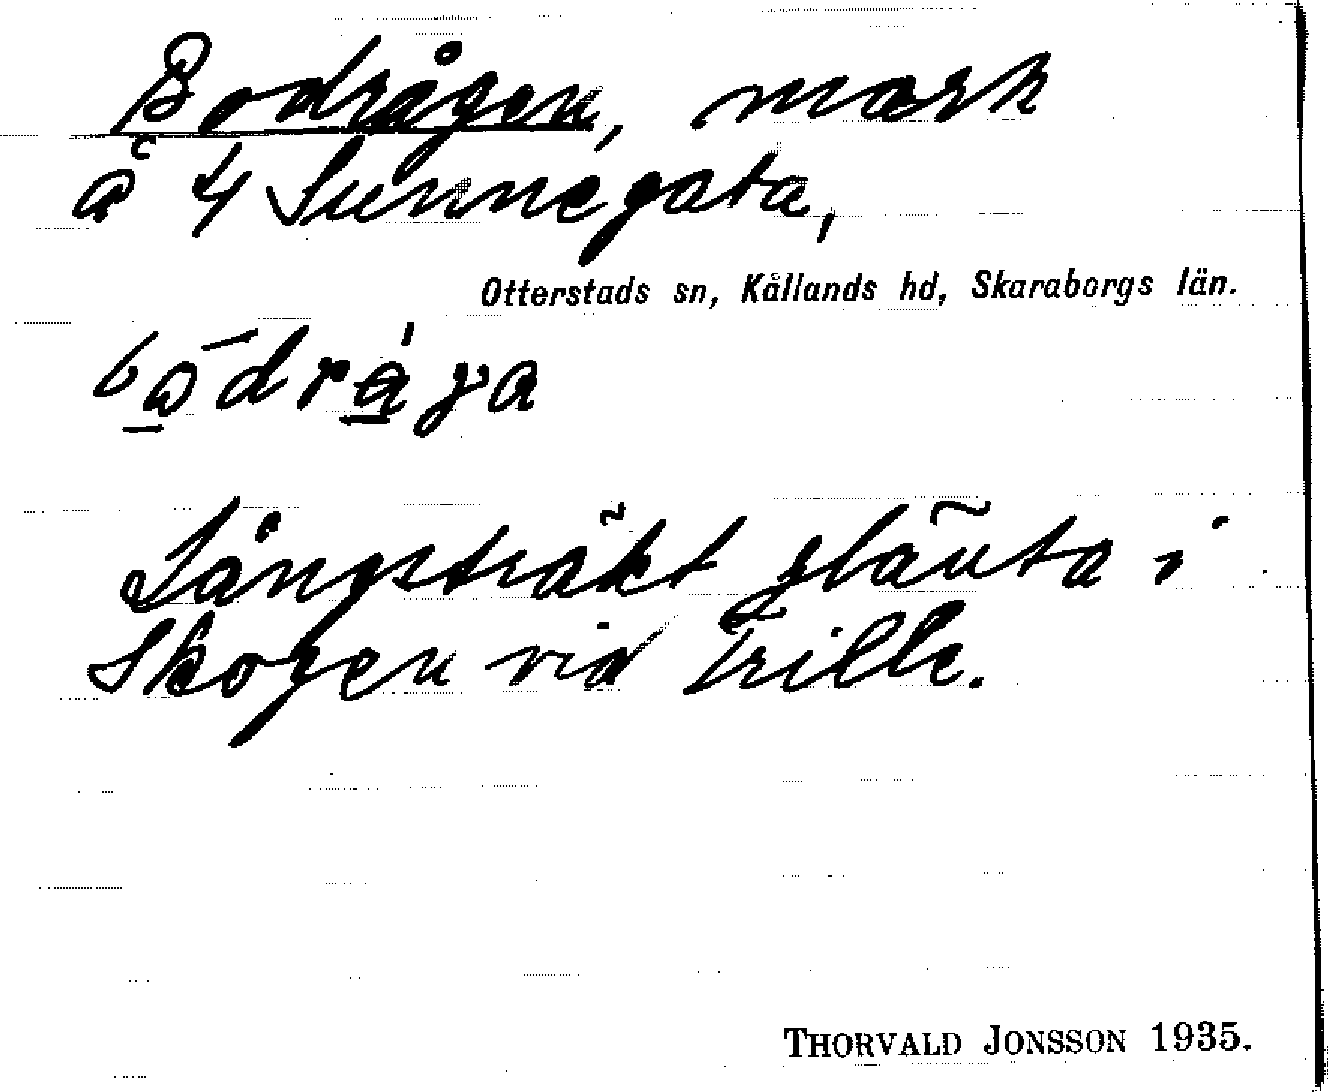 Bodrågen, mark
å 4 Sunnegata,
Otterstads sn, Kållands hd, Skaraborgs län.
Långsträkt glänta i
Skogen vid Trille.
THORVALD JONSSON 1935.